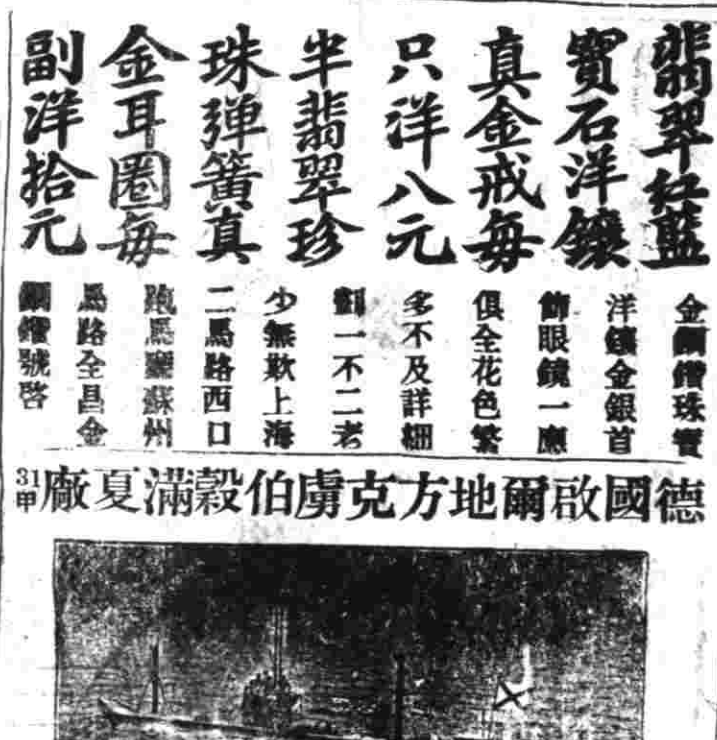 翡翠紅藍
寶石洋鑲
真金戒每
只洋八元
半翡翠珍
珠彈簧真
金耳圈每
副洋拾元
金鋼鑽珠寶
洋鑲金銀首
飾眼鏡一應
俱全花色繁
多不及詳細
劃一不二老
少無欺上海
二馬路西口
跑馬廳蘇州
馬路全昌金
鋼鑽號啓
德國啟爾地方克虜伯穀滿夏廠
31甲